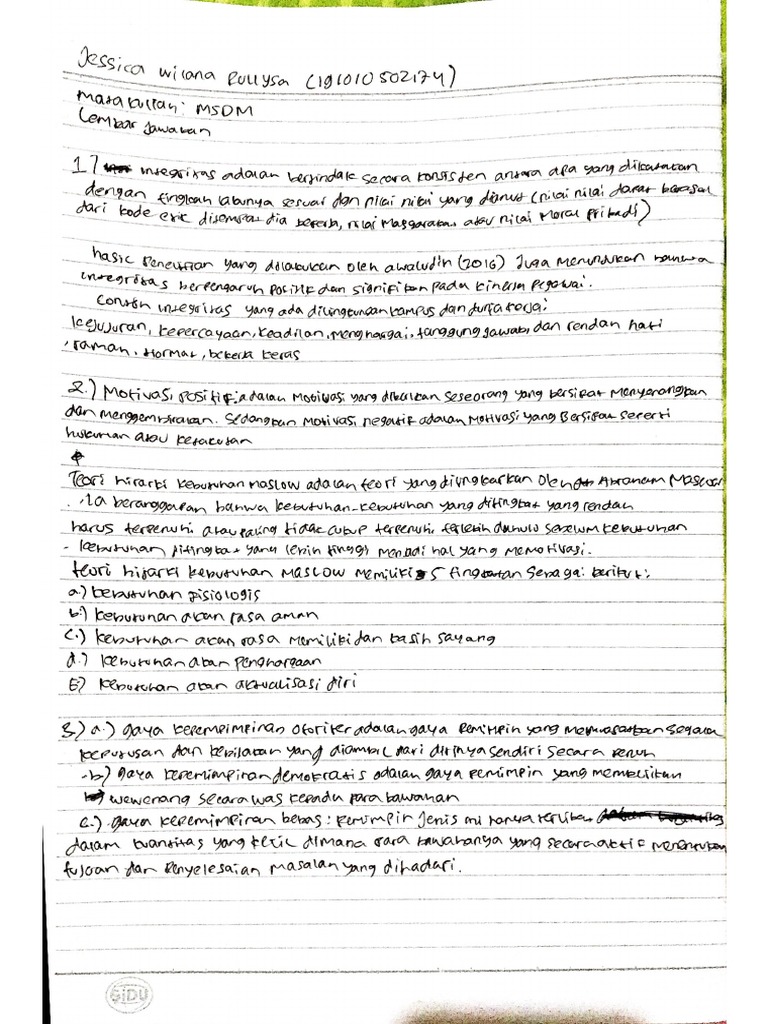 Jessica Wilana Pullysa (191010502174)
Matakuliah: MSDM
Lembar Jawaban
1) integritas adalah bertindak secara konsisten antara apa yang dikatakan
dengan tingkah lakunya sesuai dan nilai nilai yang dianut (nilai nilai dapat berasal
dari kode etik ditempat dia bekerja, nilai Masyarakat atau nilai Moral pribadi)
hasil Penelitian yang dilakukan oleh awaludin (2016) Juga menunjukan bahwa
integritas berpengaruh positif dan signifikan pada kinerja Pegawai.
Contoh integritas yang ada dilingkungan kampus dan dunia kerja:
kejujuran, kepercayaan, keadilan, menghargai, tanggung jawab, dan rendah hati
, ramah, Hormat, bekerja keras
2.) Motivasi positif adalah Motivasi yang diberikan seseorang yang bersifat Menyenangkan
dan menggembirakan. Sedangkan Motivasi negatif adalah Motivasi yang Bersifat seperti
hukuman atau ketakutan
Teori hirarki kebutuhan maslow adalah teori yang diungkapkan oleh Abraham Maslow
. Ia beranggapan bahwa kebutuhan-kebutuhan yang ditingkat yang rendah
harus terpenuhi atau paling tidak cukup terpenuhi terlebih dahulu sebelum kebutuhan
- kebutuhan ditingkat yang lebih tinggi menjadi hal yang memotivasi.
teori hijarki kebutuhan MASLOW MEMILIKI 5 tingkatan sebagai berikut:
a.) kebutuhan fisiologis
b.) kebutuhan akan rasa aman
C.) kebutuhan akan rasa memiliki dan kasih sayang
d.) kebutuhan akan penghargaan
E.) kebutuhan akan aktualisasi diri
3.) a.) gaya kepempimpinan otoriter adalah gaya Pemimpin yang memusatkan segala
keputusan dan kebijakan yang diambil dari dirinya sendiri secara penuh
-b) gaya kepemimpinan demokratis adalah gaya pemimpin yang memberikan
wewenang secara luas kepada para bawahan
c.) gaya kepemimpinan bebas: Pemimpin jenis ini hanya terlibat
dalam kuantitas yang kecil dimana para bawahanya yang secara aktif menentukan
tujuan dan penyelesaian masalah yang dihadapi.
SiDU